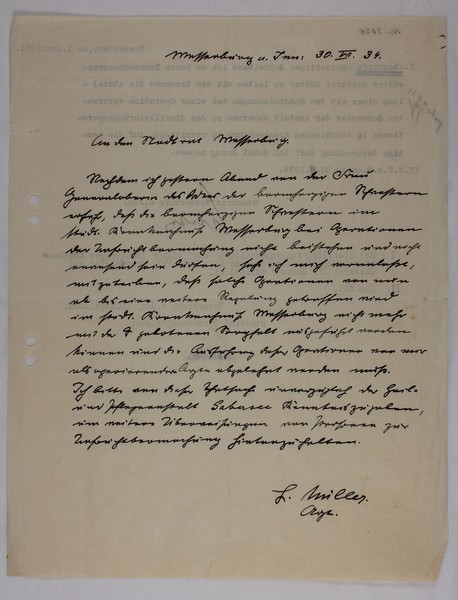 Wasserburg a. Inn, 30. VII. 34.
An den Stadtrat Wasserburg.
Nachdem ich gestern Abend von der Frau
Generaloberin des Ordens der barmherzigen Schwestern
erfuhr, daß die barmherzigen Schwestern im
städt. Krankenhaus Wasserburg bei Operationen
der Unfruchtbarmachung nicht beistehen und nicht
anwesend sein dürfen, sehe ich mich veranlaßt,
mitzuteilen, daß solche Operationen von nun
ab bis eine weitere Regelung getroffen wird
im städt. Krankenhaus Wasserburg nicht mehr
mit der gebotenen Sorgfalt ausgeführt werden
können und die Ausführung dieser Operationen von mir
als operierenden Arzt abgelehnt werden muß.
Ich bitte von dieser Tatsache unverzüglich der Heil-
und Pflegeanstalt Gabersee Kenntnis zu geben,
um weitere Überweisungen von Personen zur
Unfruchtbarmachung hintanzuhalten.
Müller.
Arzt.